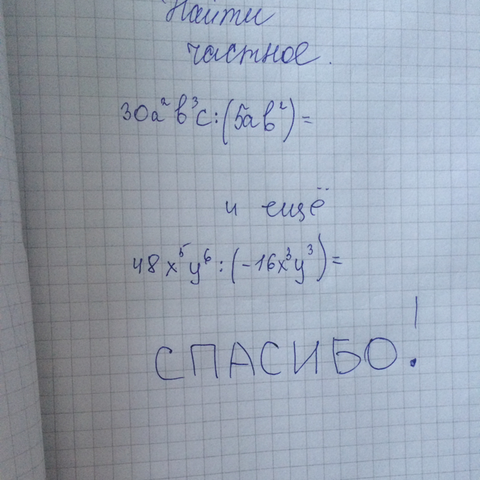 Найти
частное.
30a²b³c:(5ab²)=
и ещё
48x⁵y⁶:(-16x³y³)=
СПАСИБО!